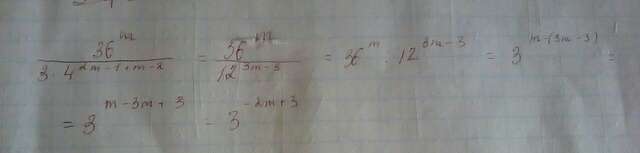 36^m / (3 · 4^(2m-1+m-2)) = 36^m / 12^(3m-3) = 36^m : 12^(3m-3) = 3^(m-(3m-3)) =
= 3^(m-3m+3) - 3^(-2m+3)